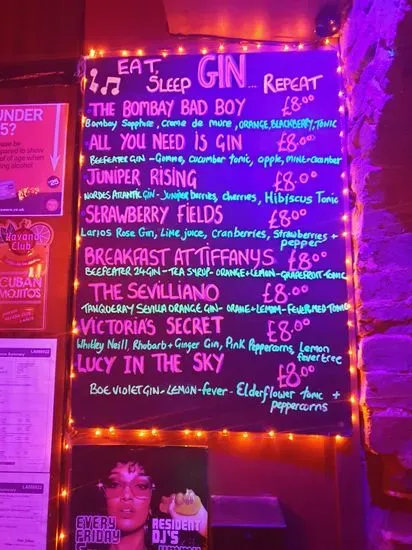 EAT
SLEEP GIN... REPEAT
THE BOMBAY BAD BOY £8.00
Bombay Sapphire, creme de mure, ORANGE, BLACKBERRY, TONIC
ALL YOU NEED IS GIN £8.00
BEEFEATER GIN - Gomme, cucumber tonic, apple, MINT + cucumber
JUNIPER RISING £8.00
NORDES ATLANTIC GIN - Juniper berries, cherries, Hibiscus Tonic
STRAWBERRY FIELDS £8.00
Larios Rose Gin, Lime juice, cranberries, Strawberries + pepper
BREAKFAST AT TIFFANYS £8.00
BEEFEATER 24 GIN - TEA SYRUP - ORANGE + LEMON - GRAPEFRUIT TONIC
THE SEVILLIANO £8.00
TANQUERRY SEVILLA ORANGE GIN - ORANGE + LEMON - FEVER MED TONIC
VICTORIA'S SECRET £8.00
Whitley Neill, Rhubarb + Ginger Gin, Pink Peppercorns, Lemon
fever tree
LUCY IN THE SKY £8.00
BOE VIOLET GIN - LEMON - fever - Elderflower tonic +
peppercorns
UNDER
5?
Havana Club
CUBAN
MOJITOS
EVERY
FRIDAY
RESIDENT
DJ'S